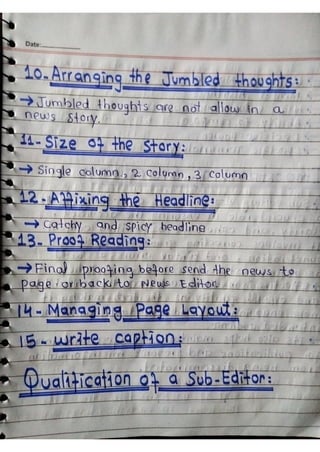 Date:
10-Arranging the Jumbled thoughts:
→ Jumbled thoughts are not allow in a
news story.
11-Size of the Story:
→ Single column, 2 column, 3 column
12. Affixing the Headline:
→ Catchy and spicy headline
13- Proof Reading:
→ Final proofing before send the news to
page or back to News Editor
14- Managing Page Layout:
15- write caption:
Qualification of a Sub-Editor: